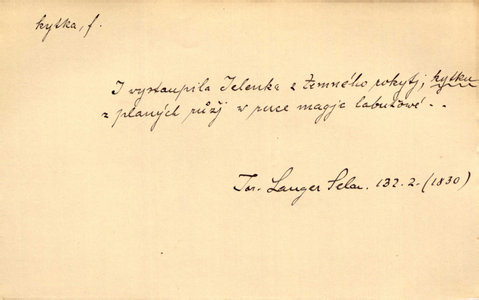 kytka, f.
I wystaupila Jelenka z temného rokytj, kytku
z planých růžj w ruce magje labutowé . .
Jos. Langer Selan. 132. 2. (1830)